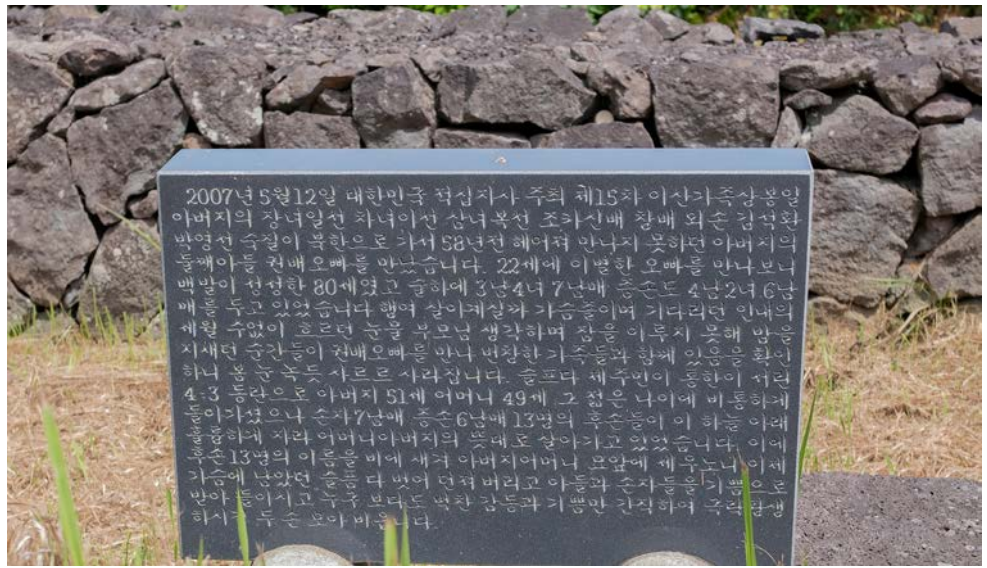 2007년 5월12일 대한민국 적십자사 주최 제15차 이산가족상봉일
아버지의 장녀일선 차녀이선 삼녀복선 조카신배 창배 외손 김석환
박영선 숙질이 북한으로 가서 58년전 헤어져 만나지 못하던 아버지의
둘째아들 권배 오빠를 만났습니다. 22세에 이별한 오빠를 만나보니
백발이 성성한 80세였고 슬하에 3남4녀 7남매 증손도 4남2녀 6남
매를 두고 있었습니다 행여 살아계실까 가슴졸이며 기다리던 인내의
세월 수없이 흐르던 눈물 부모님 생각하며 잠을 이루지 못해 밤을
지새던 순간들이 권배오빠를 만나 번창한 가족들과 함께 있음을 확인
하니 봄눈 녹듯 사르르 사라집니다. 슬프다 제주민이 통한이 서린
4·3 동란으로 아버지 51세 어머니 49세 그 젊은 나이에 비통하게
돌아가셨으나 손자7남매 증손6남매 13명의 후손들이 이 하늘 아래
에 자라 어머니아버지의 뜻대로 살아가고 있었습니다. 이에
후손13명의 이름을 비에 새겨 아버지어머니 묘앞에 세우노니 이제
가슴에 남았던 다 벗어 던져버리고 아들과 손자들을 기쁨으로
받아 들이시고 누구보다도 벅찬 감동과 기쁨만 간직하여 극락왕생
하시길 두손 모아 비옵니다.